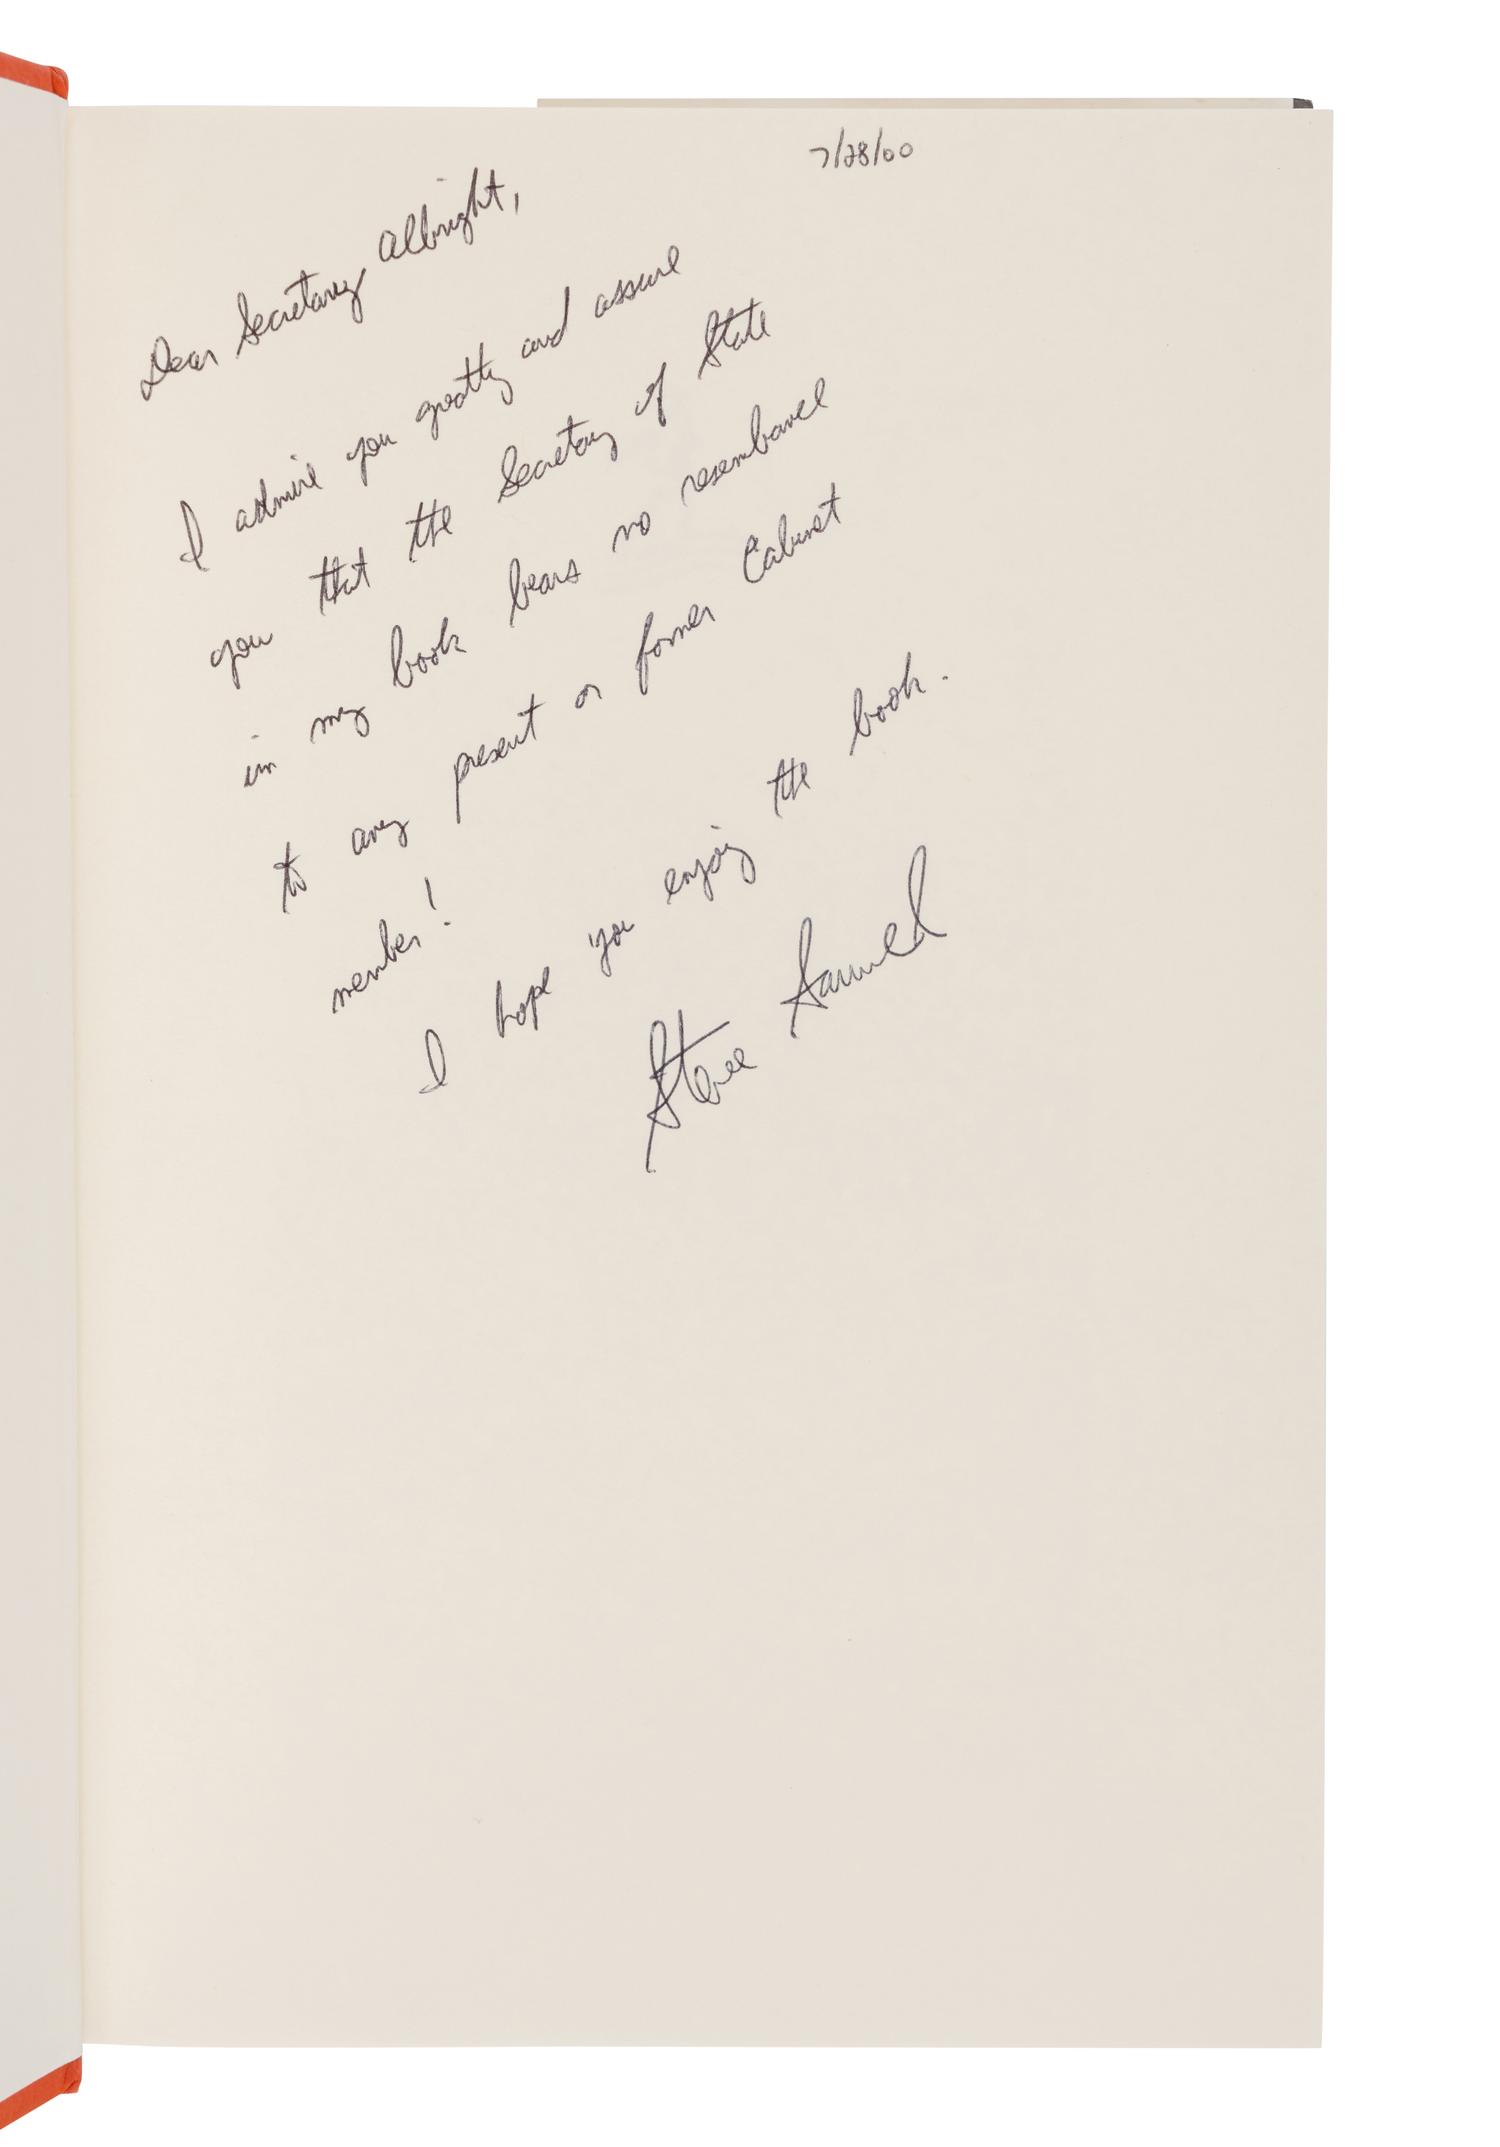 7/28/00
Dear Secretary Albright,
I admire you greatly and assure
you that the Secretary of State
in my book bears no resemblance
to any present or former Cabinet
member!
I hope you enjoy the book.
Steve Samuel